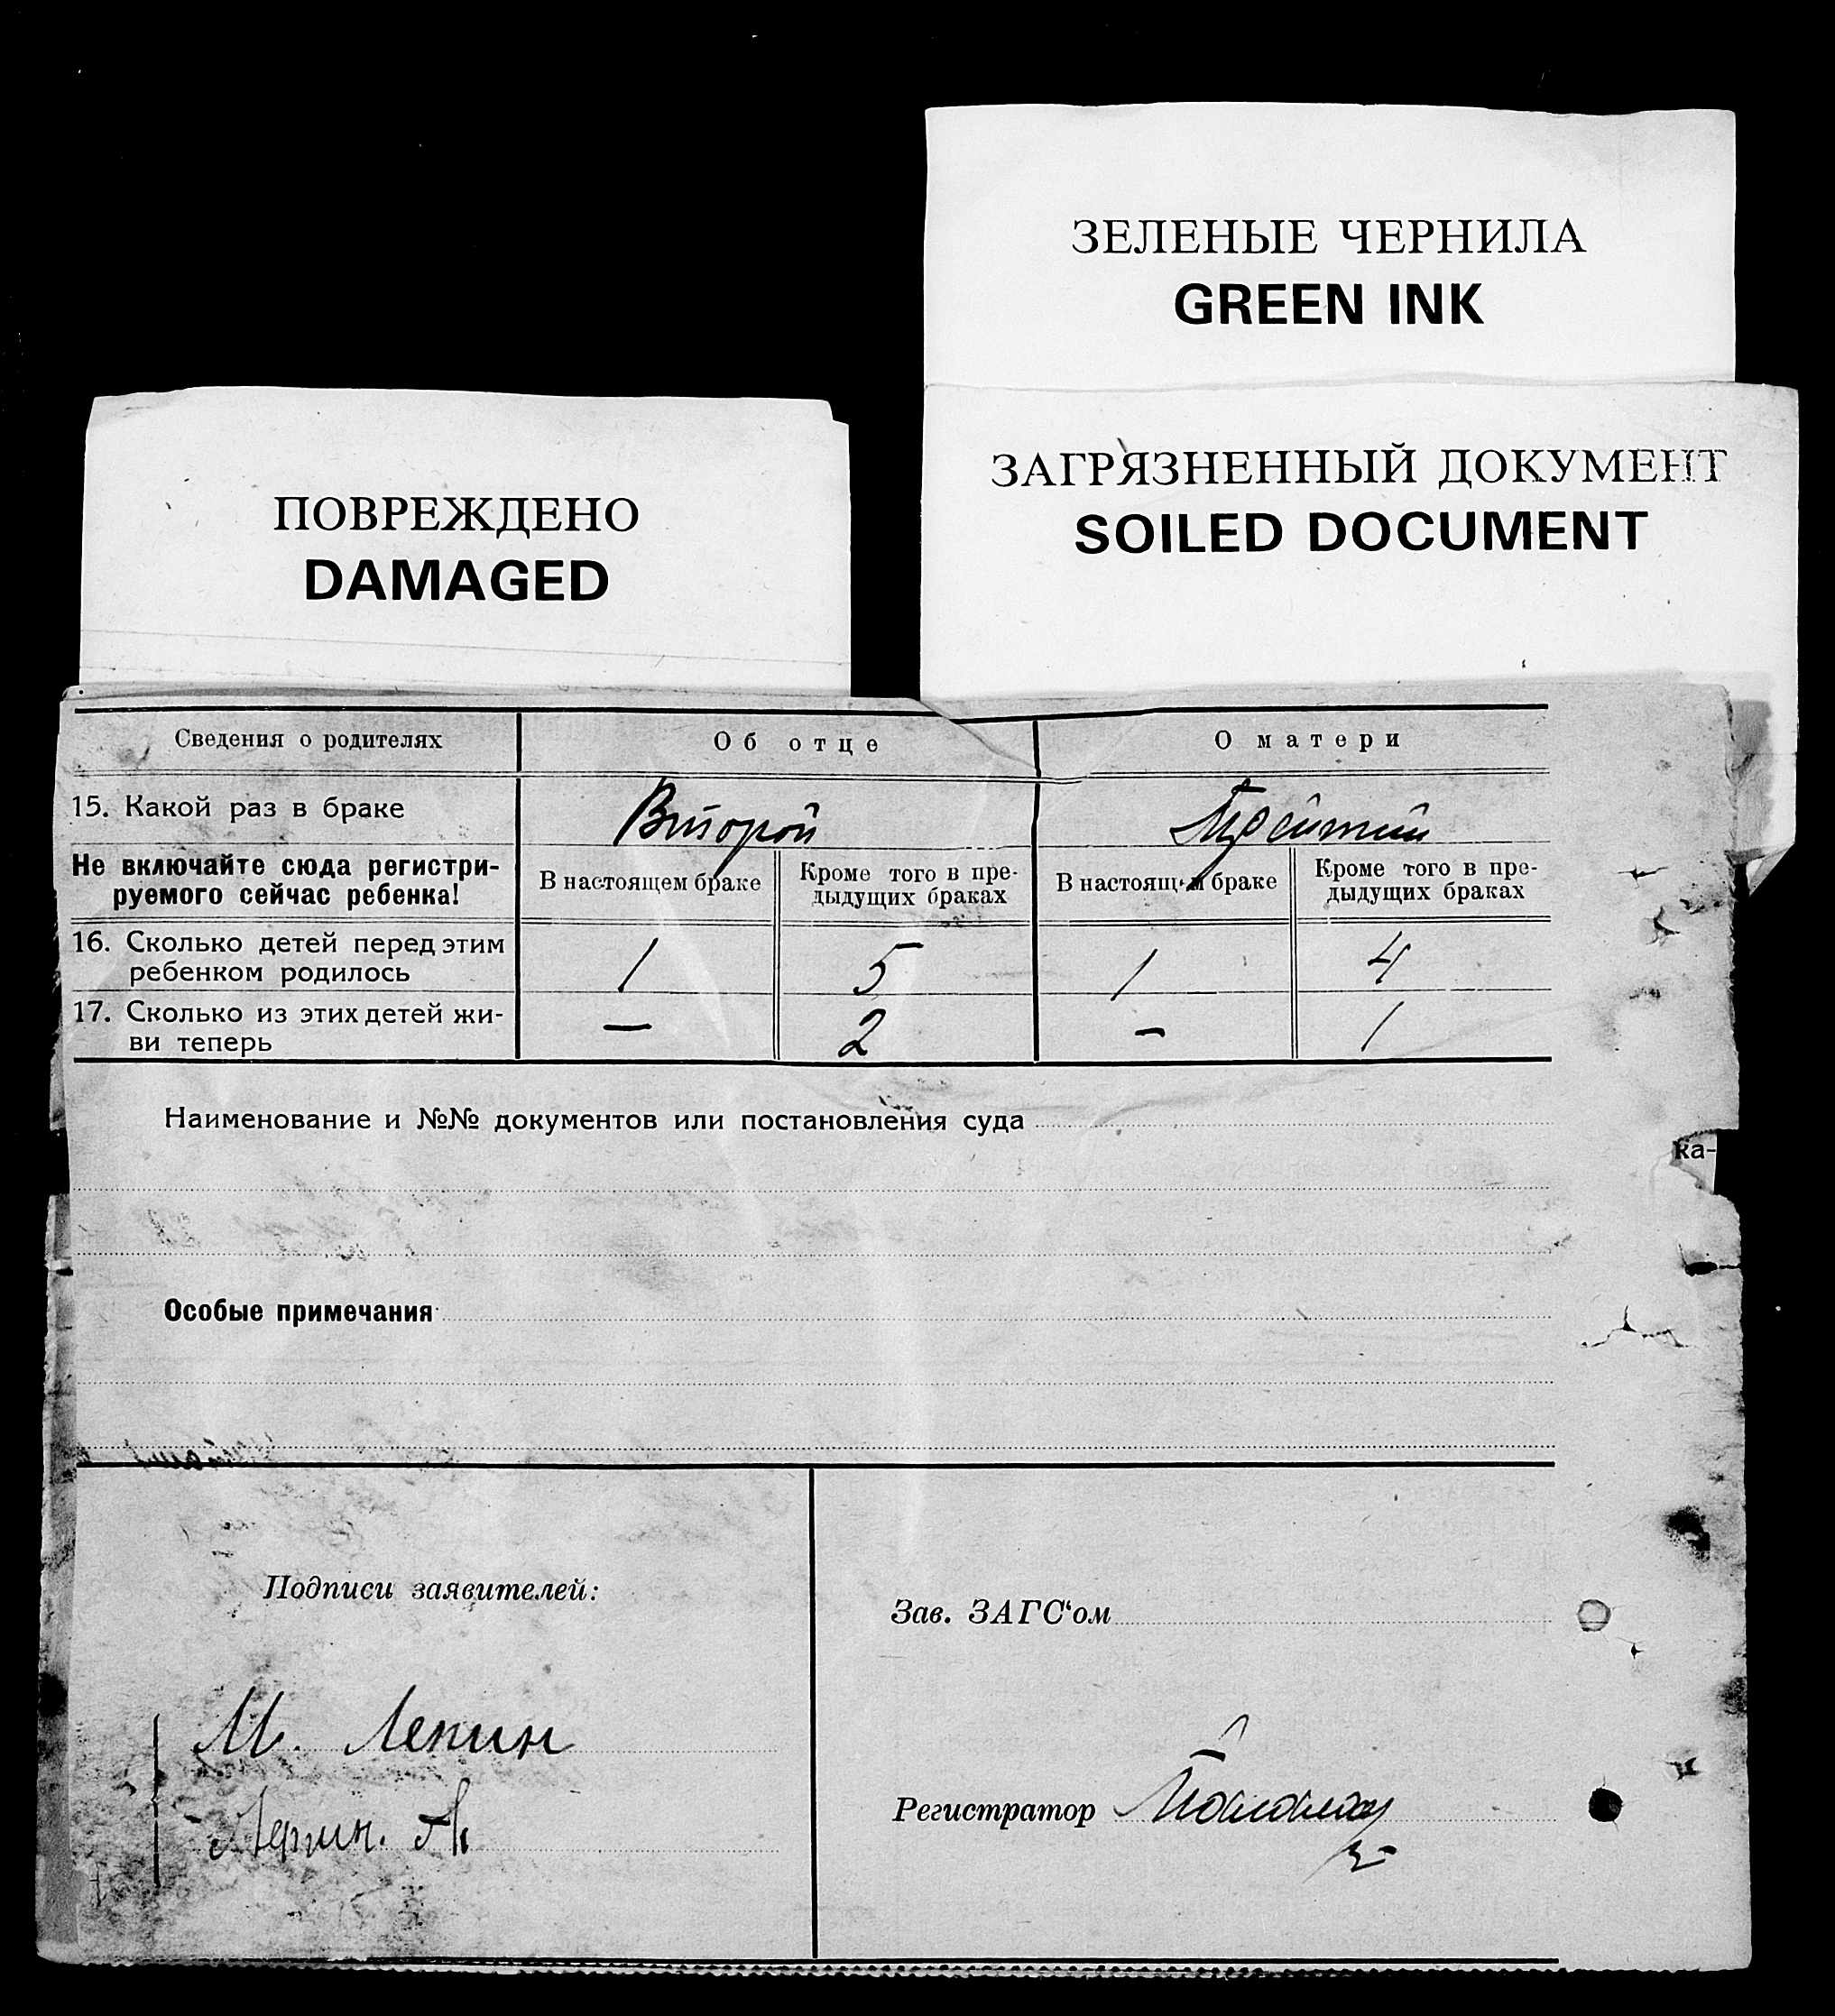 ЗЕЛЕНЫЕ ЧЕРНИЛА
GREEN INK
ЗАГРЯЗНЕННЫЙ ДОКУМЕНТ
SOILED DOCUMENT
ПОВРЕЖДЕНО
DAMAGED
Сведения о родителях Об отце О матери
15. Какой раз в браке Второй
Не включайте сюда регистри-
руемого сейчас ребенка!
В настоящем браке
Кроме того в пре-
дыдущих браках
В настоящем браке
Кроме того в пре-
дыдущих браках
16. Сколько детей перед этим
ребенком родилось 1 5 1 4
17. Сколько из этих детей жи-
ви теперь — 2 - 1
Наименование и №№ документов или постановления суда
ка-
Особые примечания
Подписи заявителей:
Зав. ЗАГС‘ом
М. Лепин
Регистратор